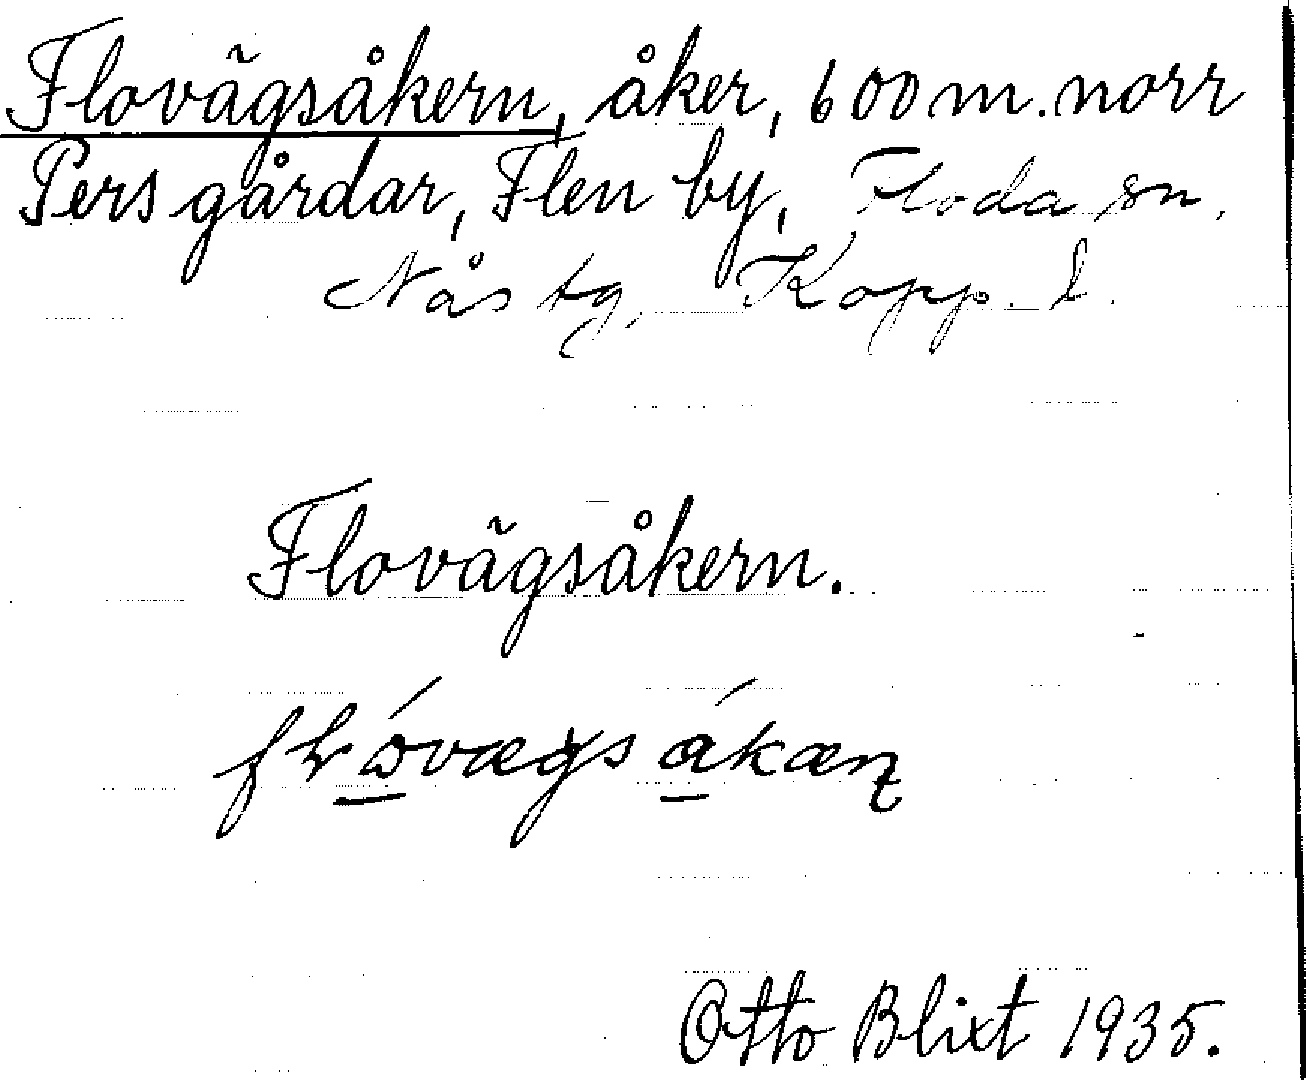 Flovägsåkern, åker, 600 m. norr
Persgårdar, Flen by, Floda sn,
Nås tg, Kopp. l.
Flovägsåkern.
Otto Blixt 1935.